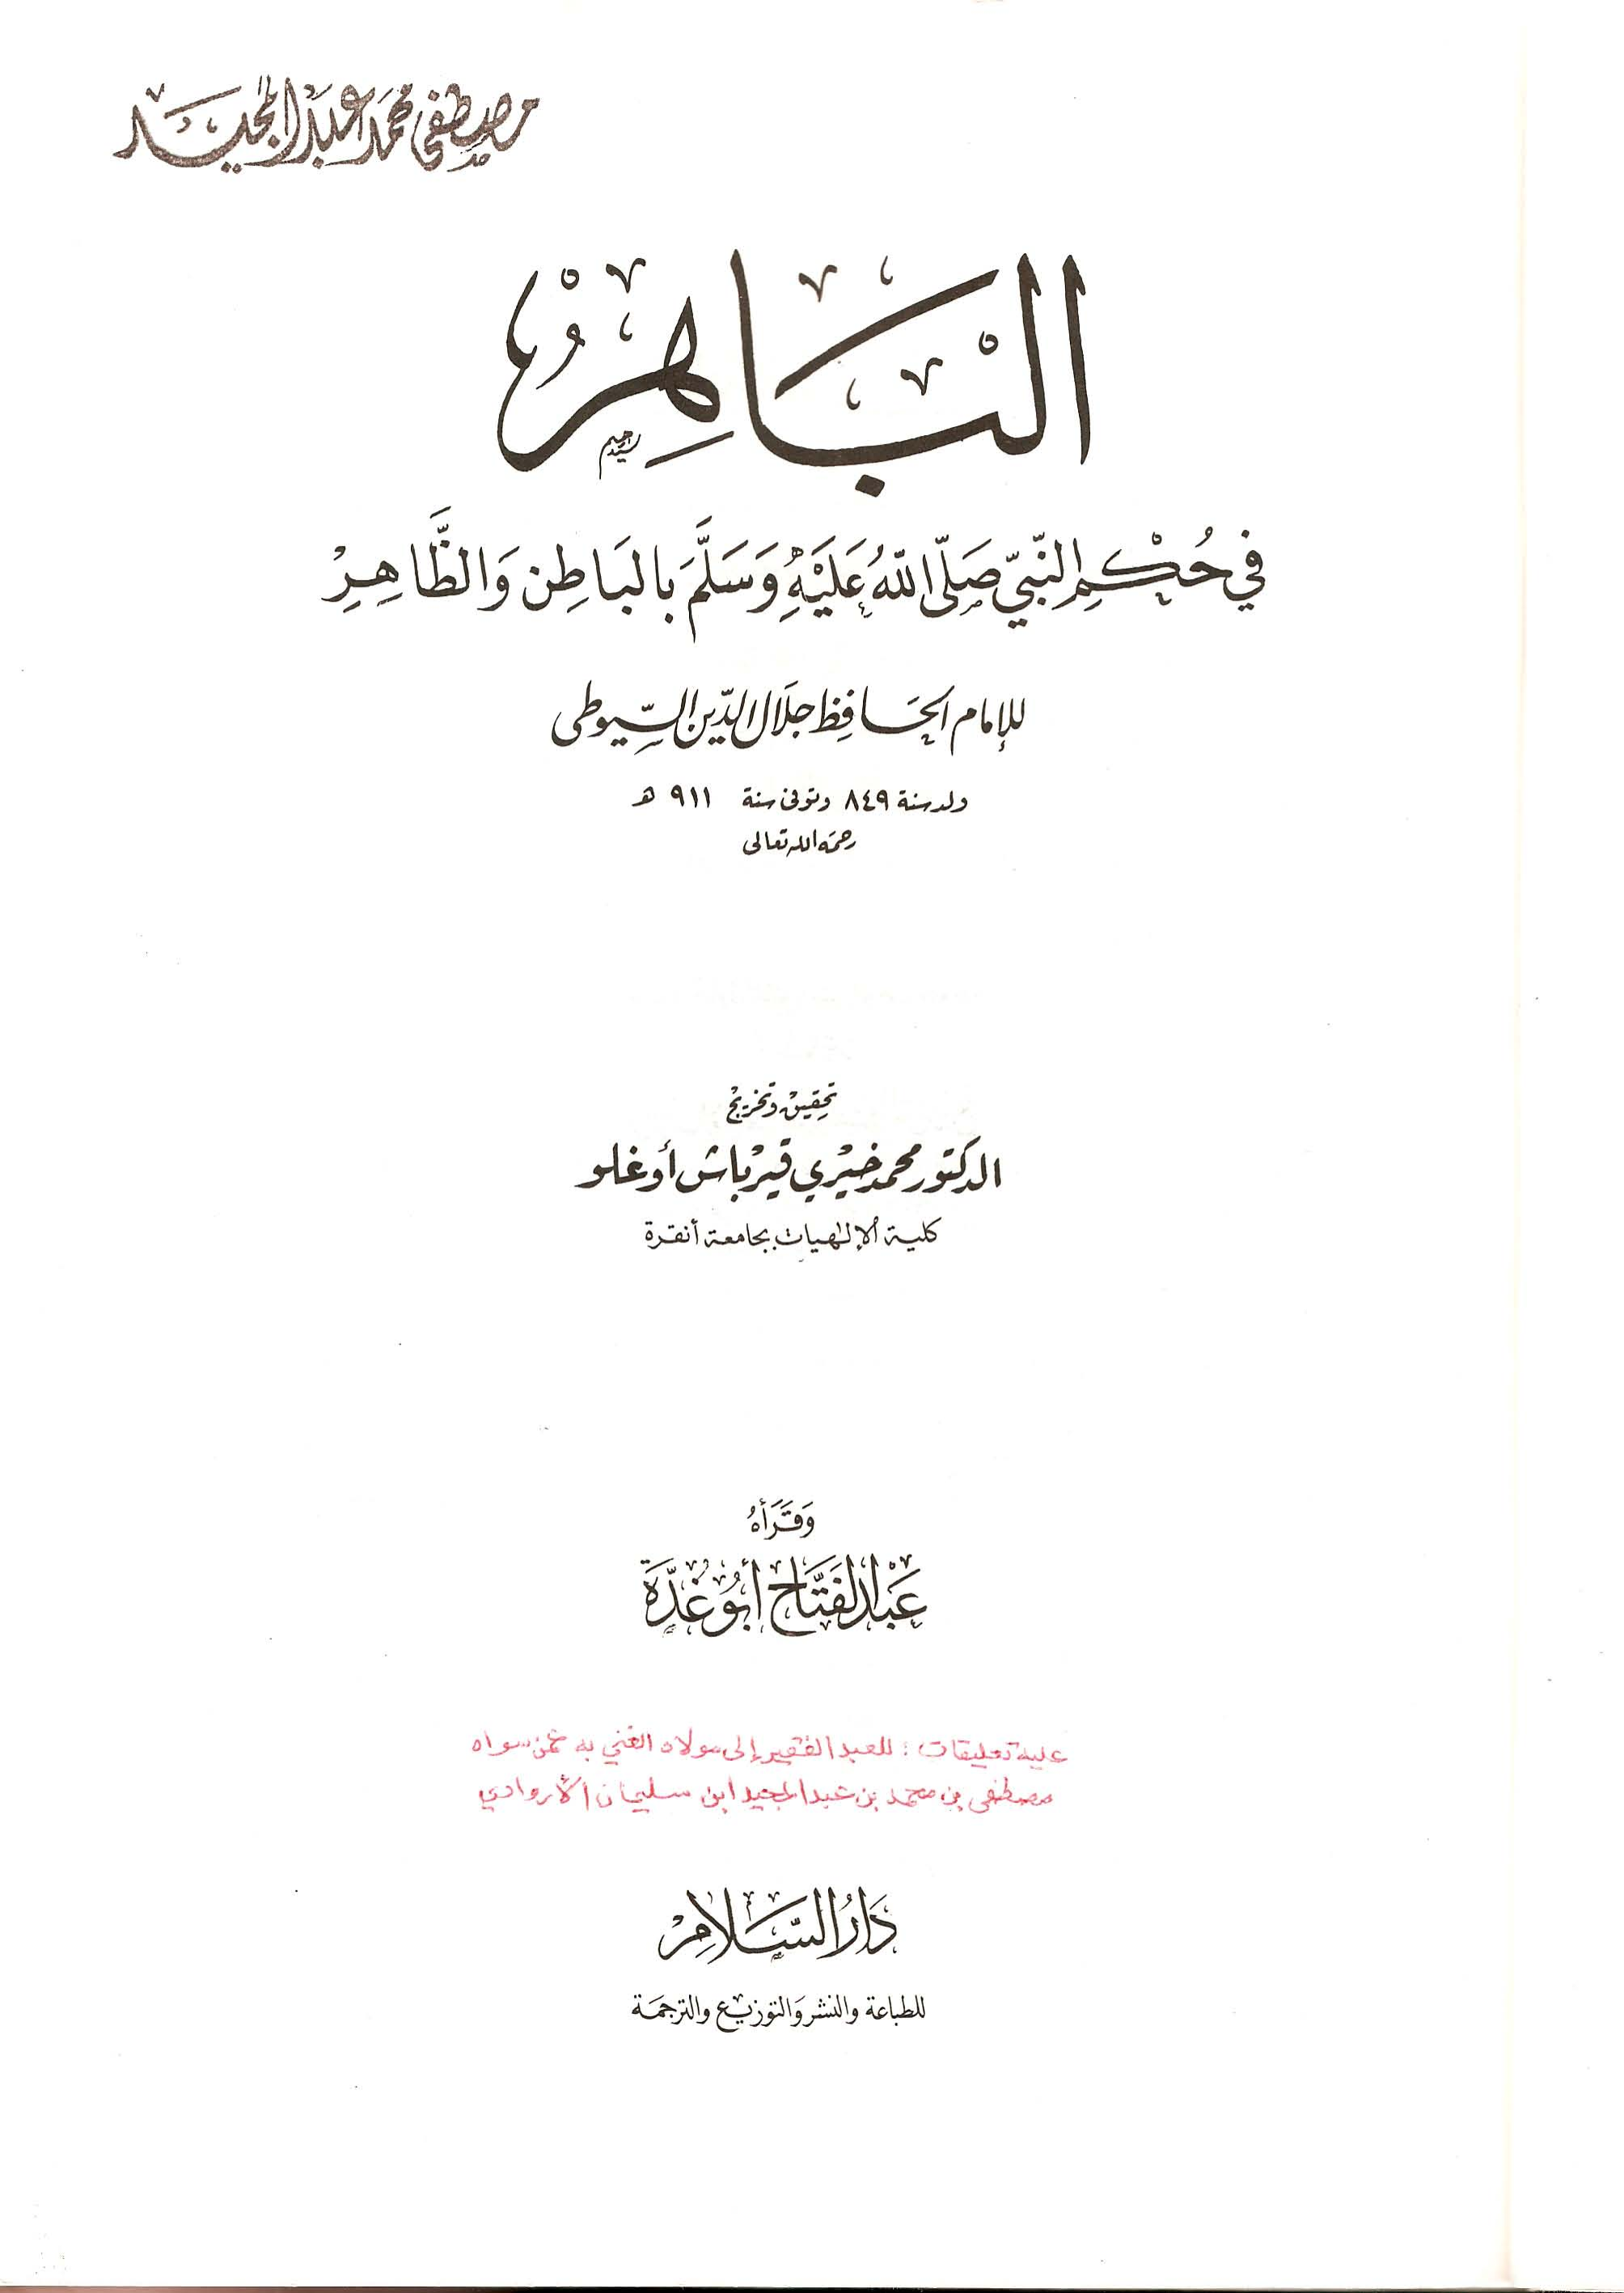 مصطفى محمد عبد المجيد
البَاهِرُ
في حُكْمِ النَّبِيّ صَلَّى اللهُ عَلَيْهِ وَسَلَّمَ بِالبَاطِنِ وَالظَّاهِرِ
للإمام الحَافِظ جلَال الدّين السِّيوطي
ولد سنة ٨٤٩ وتوفي سنة ٩١١ هـ
رحمَه الله تعالى
تحقيق وتخريج
الدكتور محمد خيري قيرباش أوغلو
كلية الإلهيات بجامعة أنقرة
وَقَرَأهُ
عَبْد الفَتَّاح أبُو غُدَّة
عليه تعليقات : للعبد الفقير إلى مولاه الغني به عمن سواه
مصطفى بن محمد بن عبد المجيد ابن سليمان الأروادي
دَارُ السَّلَامِ
للطباعة والنشر وَالتوزيع والترجمَة